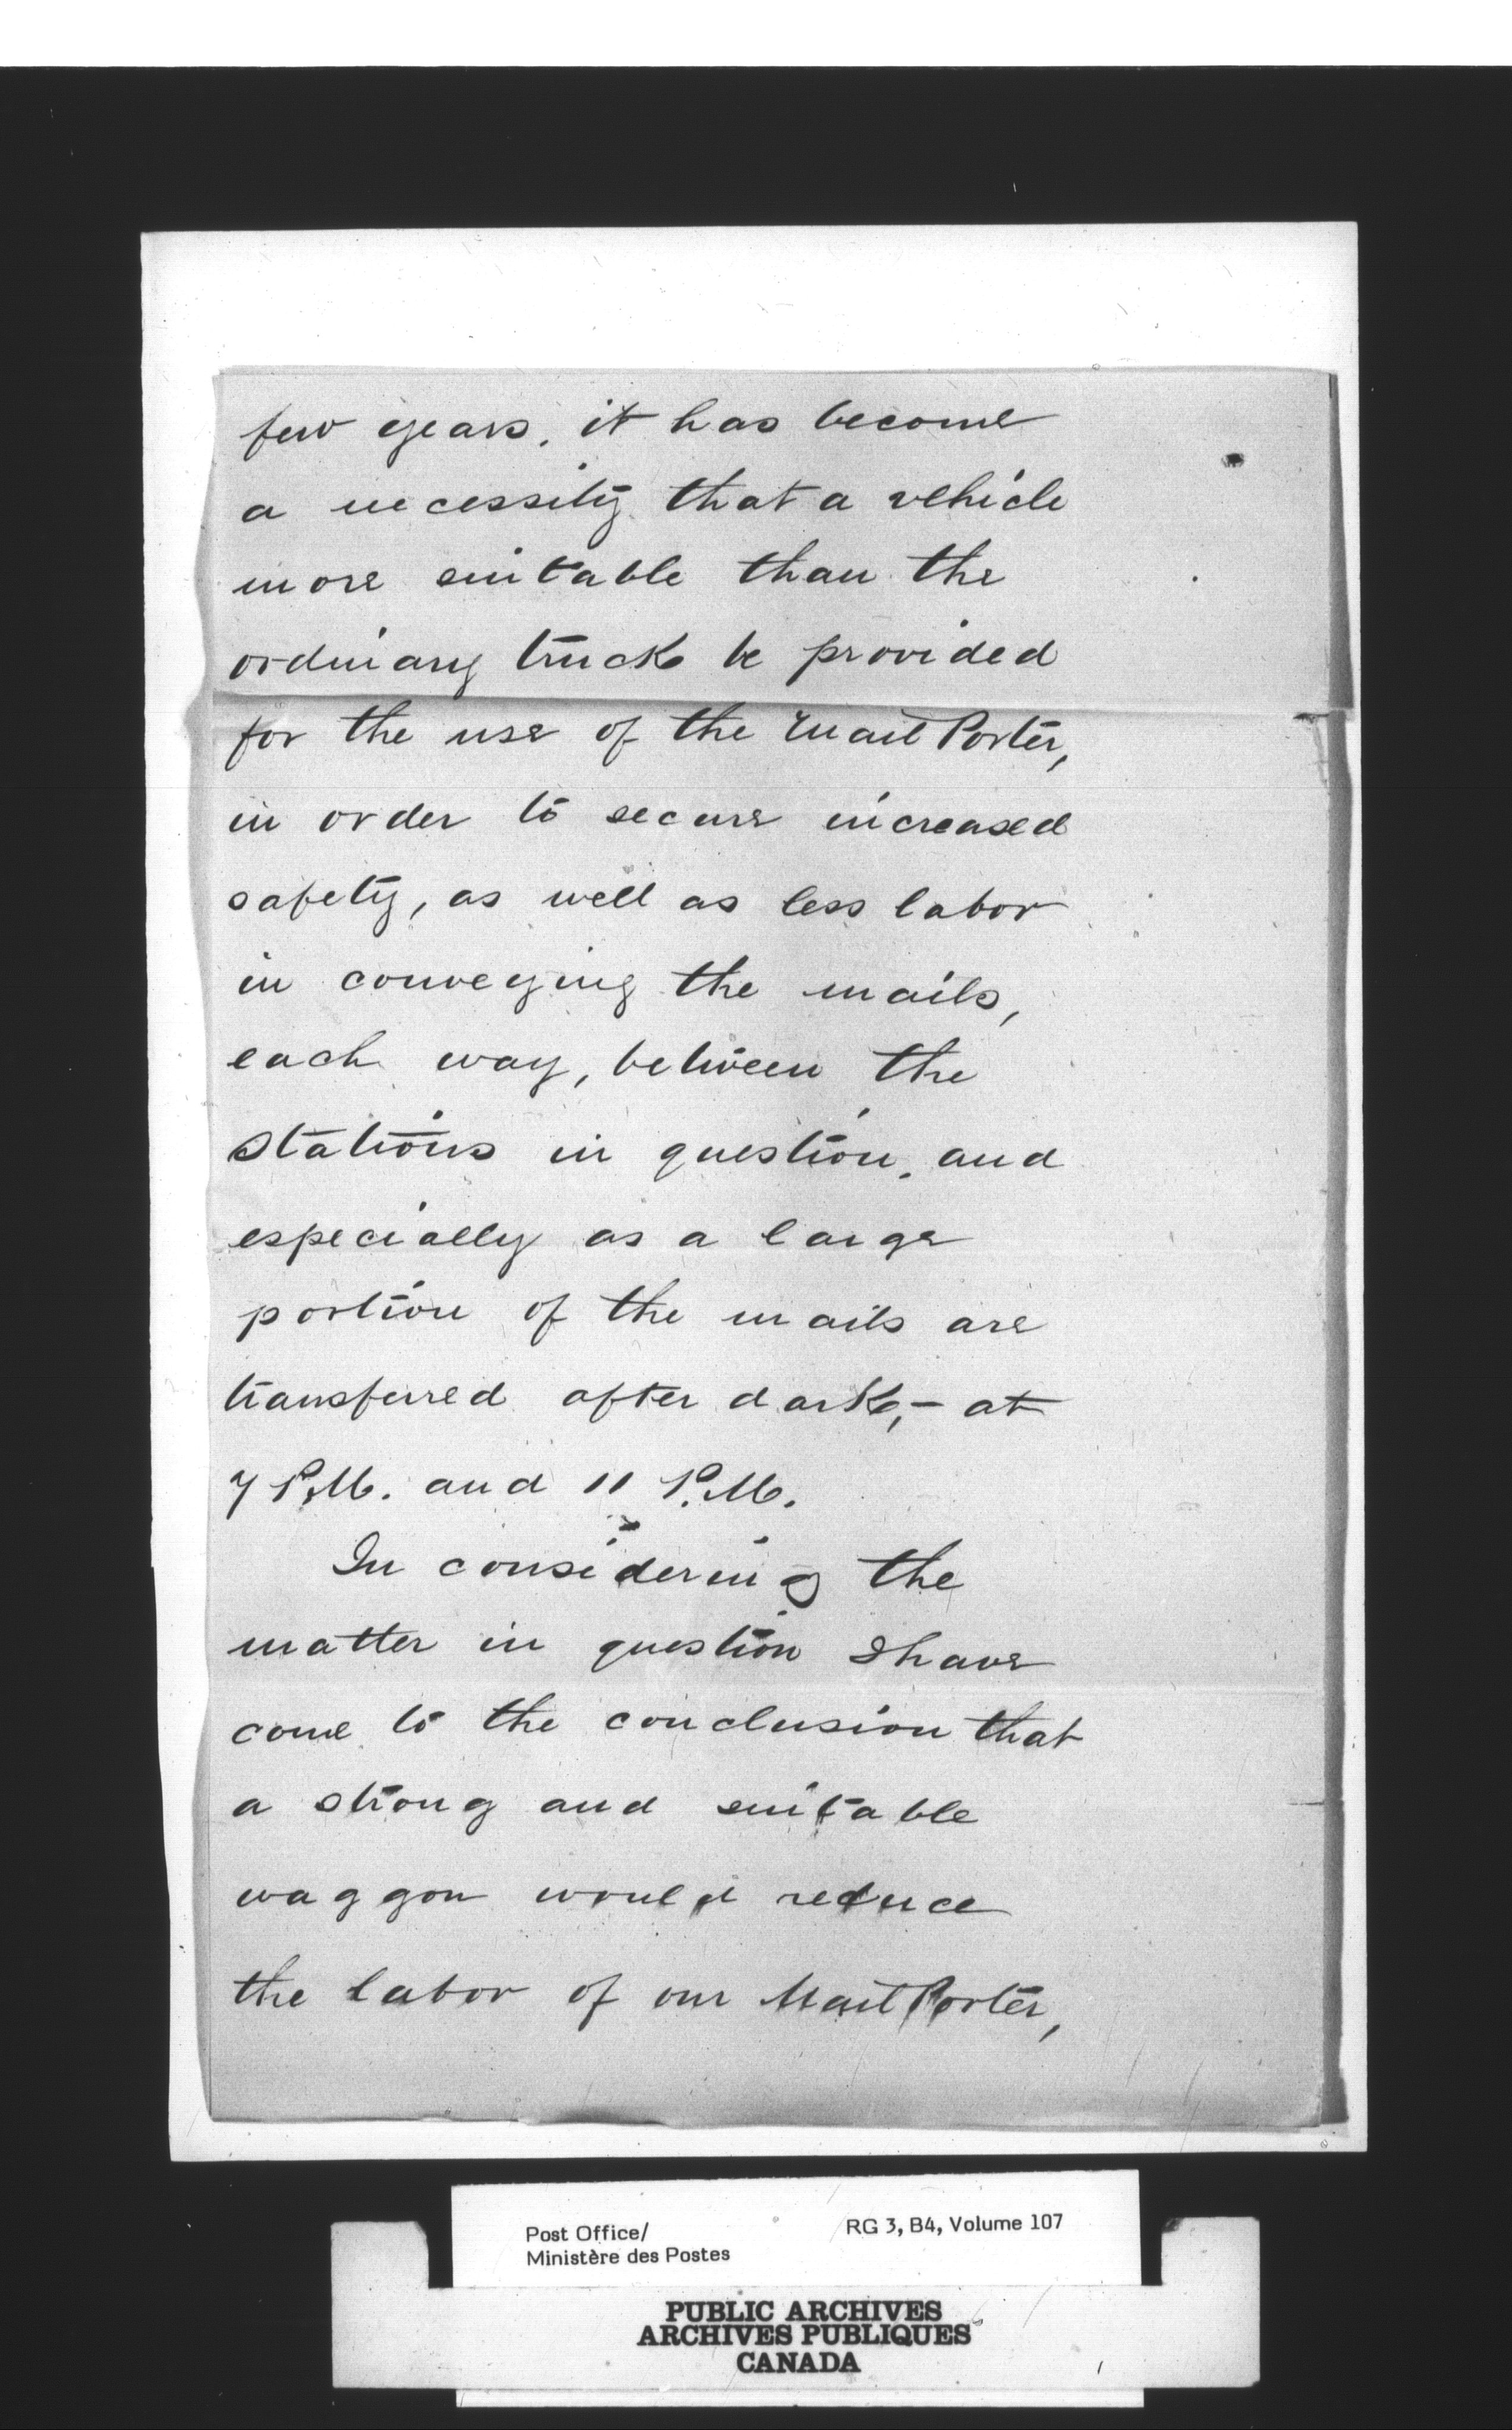 few years, it has become
a necessity that a vehicle
more suitable than the
ordinary truck be provided
for the use of the Mail Porter,
in order to secure increased
safety, as well as less labor
in conveying the mails,
each way, between the
stations in question, and
especially as a large
portion of the mails are
transferred after dark,- at
7 P.M. and 11 P.M.
In considering the
matter in question I have
come to the conclusion that
a strong and suitable
waggon would reduce
the labor of our Mail Porter,
Post Office/
Ministère des Postes
RG 3, B4, Volume 107
PUBLIC ARCHIVES
ARCHIVES PUBLIQUES
CANADA